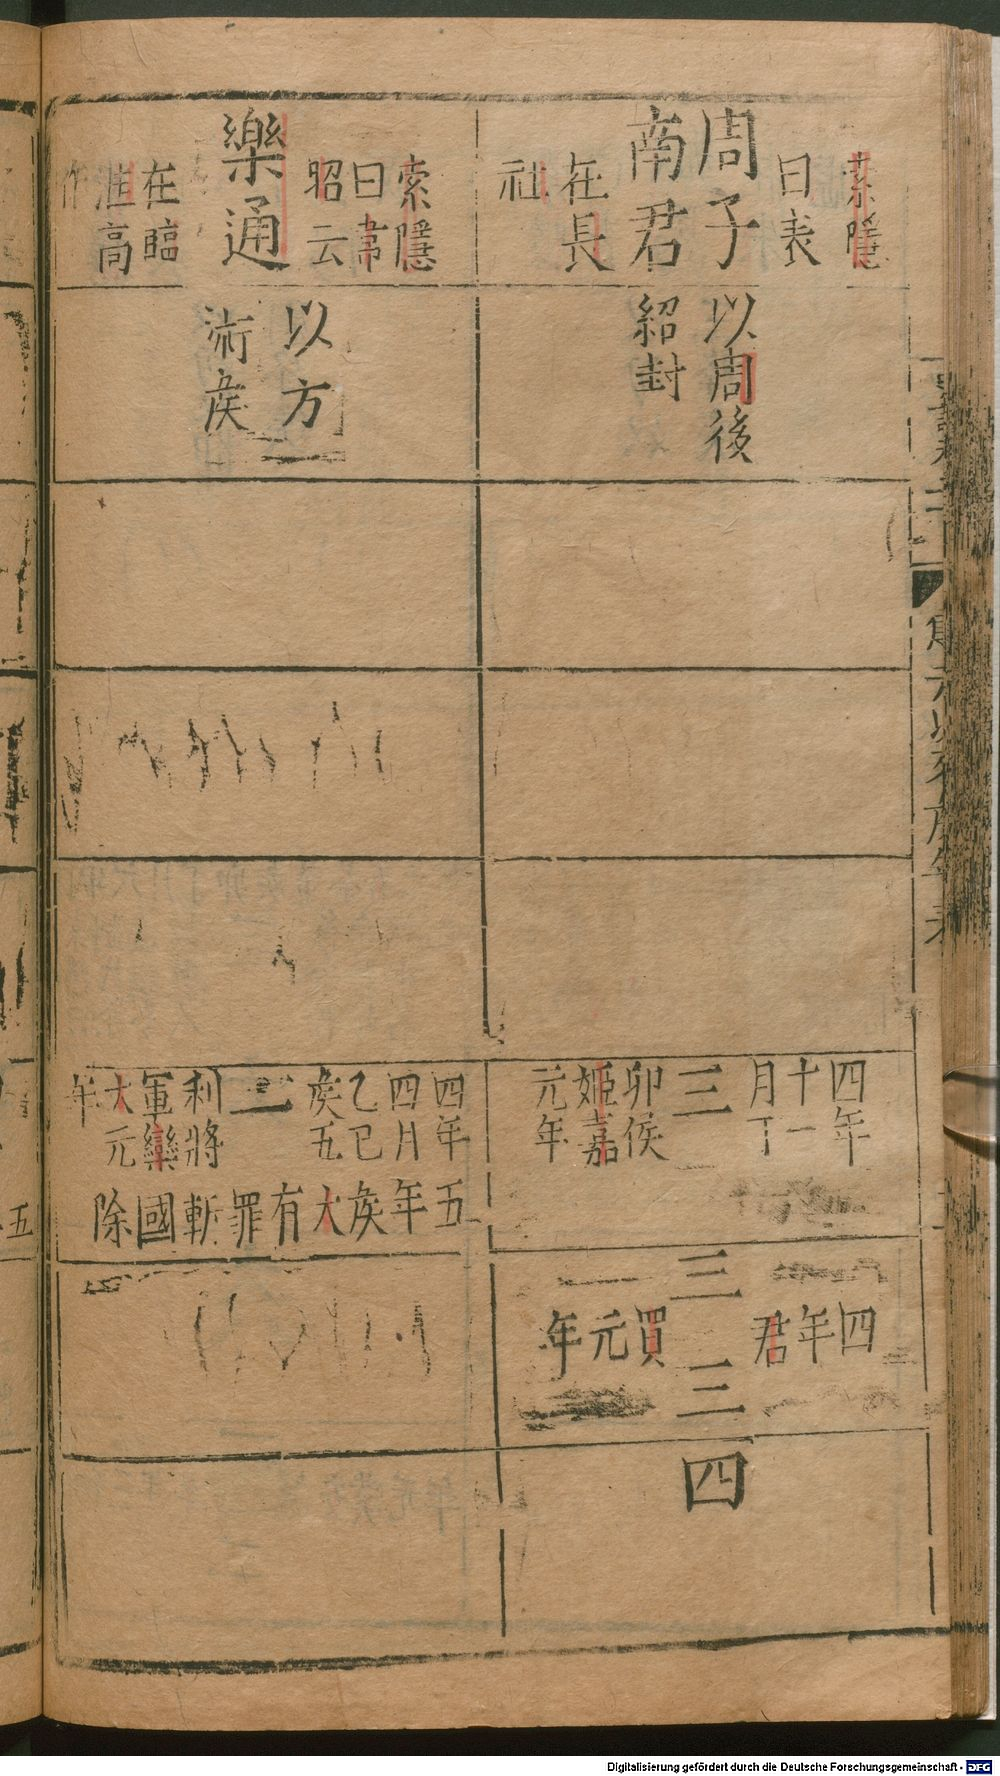 索隱
曰表
周子
南君
在長
社
以周後
紹封
四年
十一
月丁
三
卯侯
姬嘉
元年
四
年
君
三
三
買
元
年
四
索隱
曰韋
昭云
樂通
在臨
淮高
作
以方
術矦
四年
四月
乙巳
矦五
二
利將
軍欒
大元
年
五
年
矦
大
有
罪
斬
國
除
五
Digitalisierung gefördert durch die Deutsche Forschungsgemeinschaft - DFG